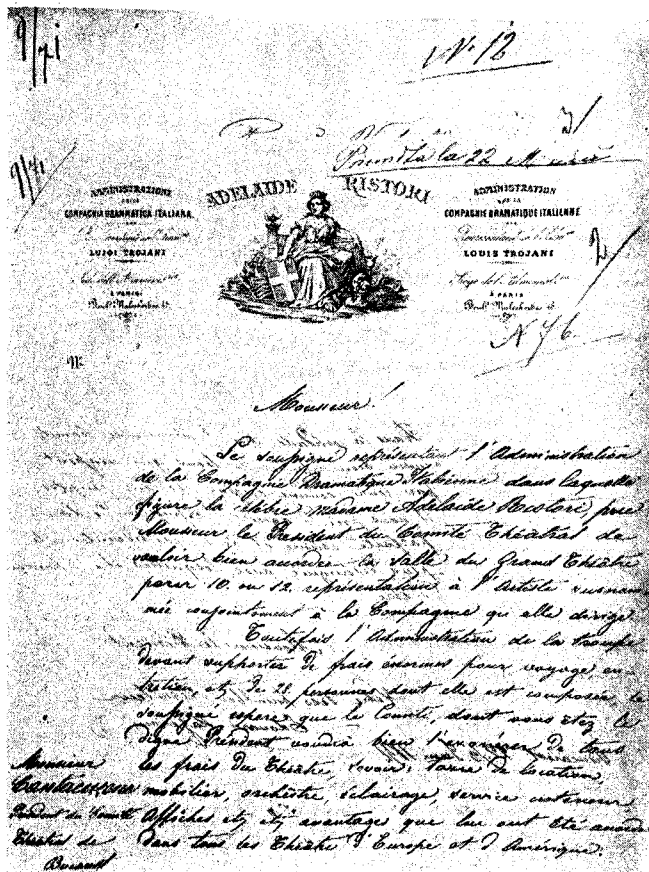 9/71
N° 12
3/
Primita la 22
9/71
ADELAIDE RISTORI
AMMINISTRAZIONE
DELLA
COMPAGNIA DRAMATICA ITALIANA
LUIGI TROJANI
À PARIS
Boulᵈ Malesherbes
ADMINISTRATION
DE LA
COMPAGNIE DRAMATIQUE ITALIENNE
LOUIS TROJANI
À PARIS
Boulᵈ Malesherbes
2/
N 76
N°
Monsieur!
Le soupigné représentant l'Administration
de la Compagnie Dramatique Italienne dans laquelle
figure la célèbre madame Adelaide Ristori, prie
Monsieur le President du Comité Théatral de
vouloir bien accorder la Salle du Grand Théâtre
pour 10 ou 12 représentation à l'Artiste susnom
mée conjointement à la Compagnie qu'elle dirige
Toutefois l'Administration de la troupe
devant supporter de frais énormes pour voyage, en
tretien, etz de 28 personnes dont elle est composée le
soupigné espère que le Comité, dont vous étez le
digne Président voudra bien l'exonérer de tous
les frais du Théâtre, savoir: Taxe de location,
mobilier, orchestre, éclairage, service
Affiches etz, etz avantages que lui ont été
dans tous les Théâtre d'Europe et d'Amérique.
Monsieur
Cantacuzene
President du Comité
Théatral de
Bucarest